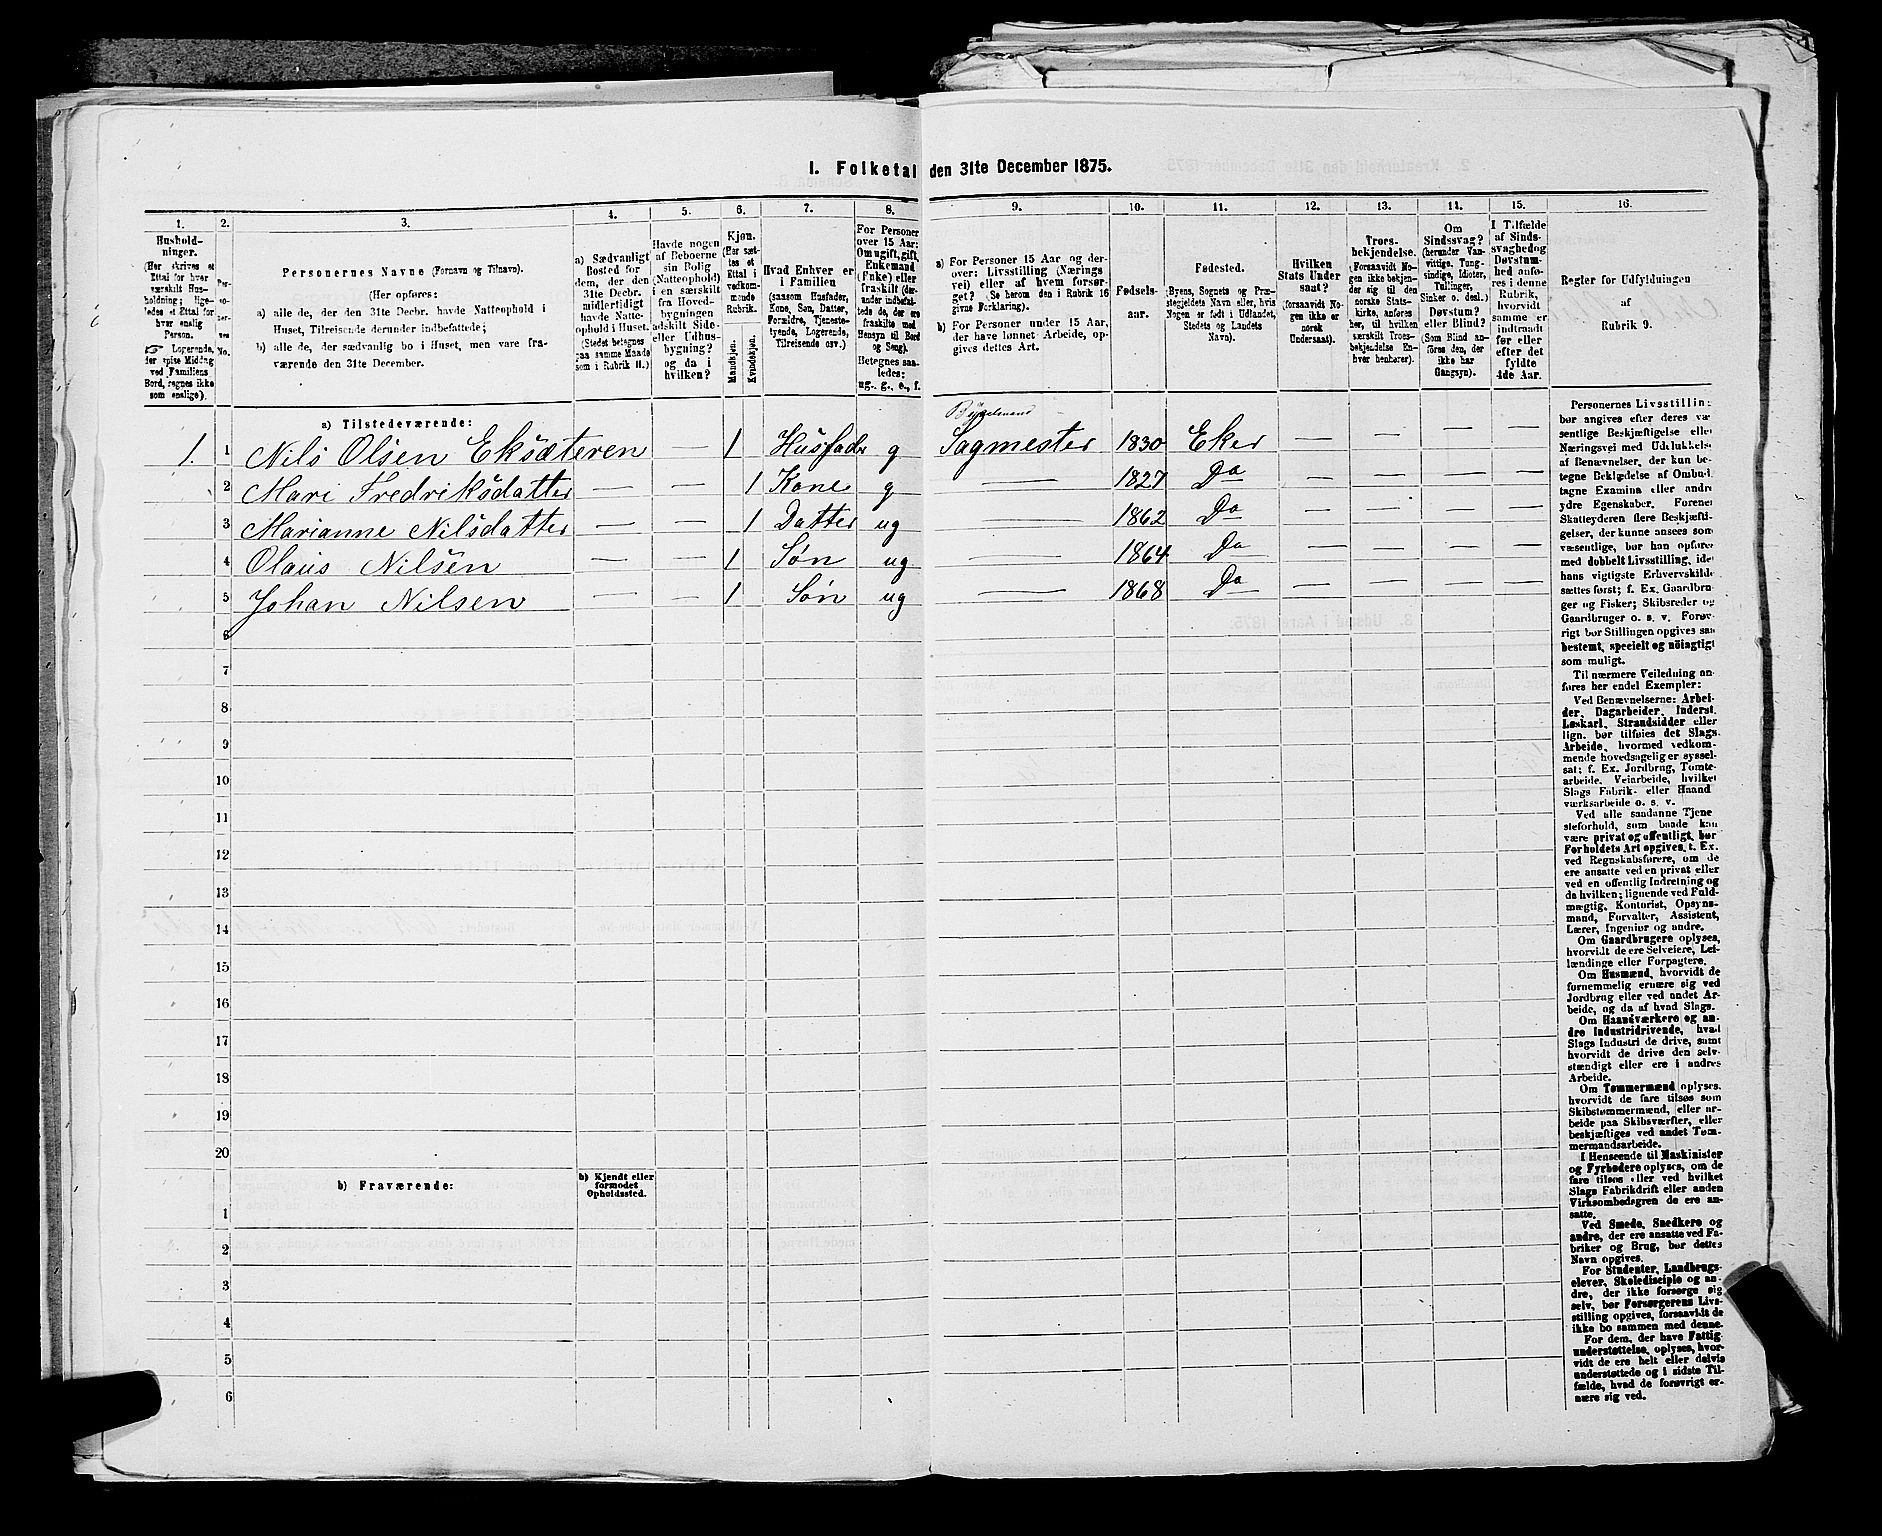 1. Folketal den 31te December 1875.
1. 2. 3. 4. 5. 6. 7. 8. 9. 10. 11. 12. 13. 14. 15. 16.
Hushold-
ninger.
(Her skrives et
Ettal for hver
særskilt Hus-
holdning; lige-
ledes et Ettal for
hver enslig
Person.
☞ Logerende,
der spise Middag
ved Familiens
Bord, regnes ikke
som enslige).
Per-
so-
ner-
nes
No.
Personernes Navne (Fornavn og Tilnavn).
(Her opføres:
a) alle de, der den 31te Decbr. havde Natteophold i
Huset, Tilreisende derunder indbefattede;
b) alle de, der sædvanlig bo i Huset, men vare fra-
værende den 31te December.
a) Sædvanligt
Bosted for
dem, der den
31te Decbr.
midlertidigt
havde Natte-
ophold i Huset.
(Stedet betegnes
paa samme Maade
som i Rubrik 11.)
Havde nogen
af Beboerne
sin Bolig
(Natteophold)
i en særskilt
fra Hoved-
bygningen
adskilt Side-
eller Udhus-
bygning?
og da i
hvilken?
Kjøn.
(Her sæt-
tes et
Ettal i
vedkom-
mende
Rubrik.
Mandskjøn.
Kvindekjøn.
Hvad Enhver er
i Familien
(saasom Husfader,
Kone, Søn, Datter,
Forældre, Tjeneste-
tyende, Logerende,
Tilreisende osv.)
For Personer
over 15 Aar:
Om ugift, gift,
Enkemand
(Enke) eller
fraskilt (der-
under indbefat-
tede de, der ere
fraskilte med
Hensyn til Bord
og Seng).
Betegnes saa-
ledes:
ug., g., e., f.
a) For Personer 15 Aar og der-
over: Livsstilling (Nærings
vei) eller af hvem forsør-
get? (Se herom den i Rubrik 16
givne Forklaring).
b) For Personer under 15 Aar,
der have lønnet Arbeide, op-
gives dettes Art.
Fødsels-
aar.
Fødested.
Byens, Sognets og Præ-
stegjeldets Navn eller, hvis
Nogen er født i Udlandet,
Stedets og Landets
Navn).
Hvilken
Stats Under
saat?
(forsaavidt No-
gen ikke er
norsk
Undersaat).
Troes-
bekjendelse.
(Forsaavidt No-
gen ikke bekjen-
der sig til den
norske Stats-
kirke, anføres
her, til hvilken
særskilt Troes-
bekjendelse En-
hver henhører).
Om
Sindssvag?
(herunder Van-
vittige, Tung-
sindige, Idioter,
Tullinger,
Sinker o. desl.)
Døvstum?
eller Blind?
(Som Blind an-
føres den, der
ikke har
Gangsyn).
I Tilfælde
af Sinds-
svaghedog
Døvstum-
hed anfø-
res i denne
Rubrik,
hvorvidt
samme er
indtraadt
før eller
efter det
fyldte
4de Aar.
Regler for Udfyldningen
af
Rubrik 9.
a) Tilstedeværende:
1. 1 Nils Olsen Eksæteren — 1 Husfader g Sagmester 1830 Eker — — — —
2 Mari Fredriksdatter — — 1 Kone g — 1827 Do — — — —
3 Marianne Nilsdatter — — 1 Datter ug — 1862 Do — — — —
4 Olaus Nilsen — — 1 Søn ug — 1864 Do — — — —
5 Johan Nilsen — — 1 Søn ug — 1868 Do — — — —
6
7
8
9
10
11
12
13
14
15
16
17
18
19
20
b) Fraværende:
b) Kjendt eller
formodet
Opholdssted.
1
2
3
4
5
6
Personernes Livsstilling
bør angives efter deres væ
sentlige Beskjæftigelse eller
Næringsvei med Udelukkelse
af Benævnelser, der kun be-
tegne Beklædelse af Ombud,
tagne Examina eller andre
ydre Egenskaber. Forener
Skatteyderen flere Beskjæfti-
gelser, der kunne ansees som
væsentlige, bør han opføres
med dobbelt Livsstilling, idet
hans vigtigste Erhvervskilde
sættes først; f. Ex. Gaardbru-
ger og Fisker; Skibsreder og
Gaardbruger o. s. v. Forøv-
rigt bør Stillingen opgives saa
bestemt, specielt og nöiagtigt
som muligt.
Til nærmere Veiledning an-
føres her endel Exempler:
Ved Benævnelserne: Arbei-
der, Dagarbeider, Inderst,
Løskarl, Strandsidder eller
lign. bør tilføies det Slags
Arbeide, hvormed vedkom-
mende hovedsagelig er syssel-
sat; f. Ex. Jordbrug, Tomte-
arbeide, Veiarbeide, hvilket
Slags Fabrik- eller Haand
værksarbeide o. s. v.
Ved alle saadanne Tjene
steforhold, som baade kan
være privat og offentligt, bør
Forholdets Art opgives, t. Ex.
ved Regnskabsførere, om de
ere ansatte ved en privat eller
ved en offentlig Indretning og
da hvilken; lignende ved Fuld-
mægtig, Kontorist, Opsyns-
mand, Forvalter, Assistent,
Lærer, Ingeniør og andre.
Om Gaardbrugere oplyses,
hvorvidt de ere Selveiere, Lei-
lændinge eller Forpagtere.
Om Husmænd, hvorvidt de
fornemmelig ernære sig ved
Jordbrug eller ved andet Ar-
beide, og da af hvad Slags.
Om Haandværkere og an-
dre Industridrivende, hvad
Slags Industri de drive, samt
hvorvidt de drive den selv-
stændigt eller ere i andres
Arbeide.
Om Tømmermænd oplyses,
hvorvidt de fare tilsøs som
Skibstømmermænd, eller ar-
beide paa Skibsværfter, eller
beskjæftiges ved andet Tøm-
mermandsarbeide.
I Henseende til Maskinister
og Fyrbødere oplyses, om de
fare tilsøs eller ved hvilket
Slags Fabrikdrift eller anden
Virksombedsgren de ere an-
satte.
Ved Smede, Snedkere og
andre, der ere ansatte ved Fa-
briker og Brug, bør dettes
Navn opgives.
For Studenter, Landbrugs-
elever, Skoledisciple og an-
dre, der ikke forsørge sig
selv, bør Forsørgerens Livs-
stilling opgives, forsaavidt de
ikke bo sammen med denne.
For dem, der have Fattig-
understøttelse, oplyses, hvor-
vidt de ere helt eller delvis
understøttede og i sidste Til-
fælde, hvad de forøvrigt er-
nære sig ved.